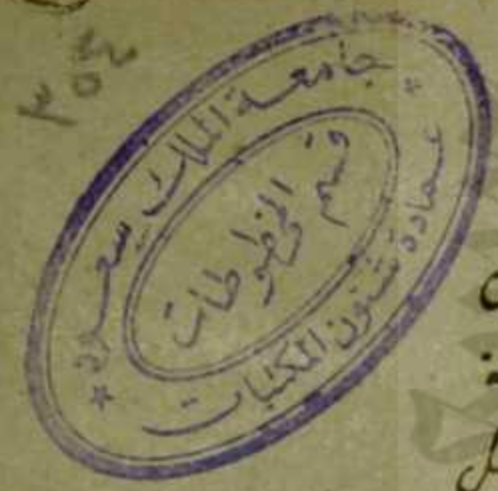 ٣٥٤
جامعة الملك سعود
قسم المخطوطات
عمادة شئون المكتبات